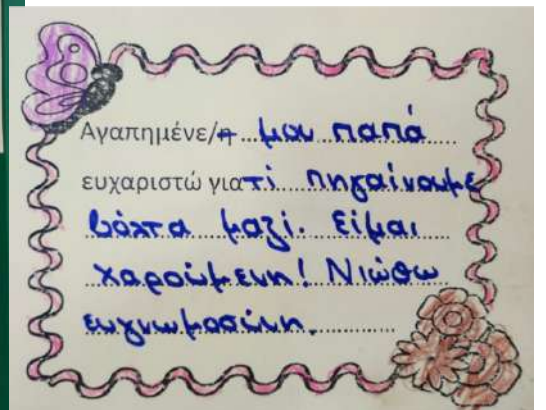 Αγαπημένε/η μου παπά
ευχαριστώ για τί πηγαίνουμε
βόλτα μαζί. Είμαι
χαρούμενη! Νιώθω
ευγνωμοσύνη.